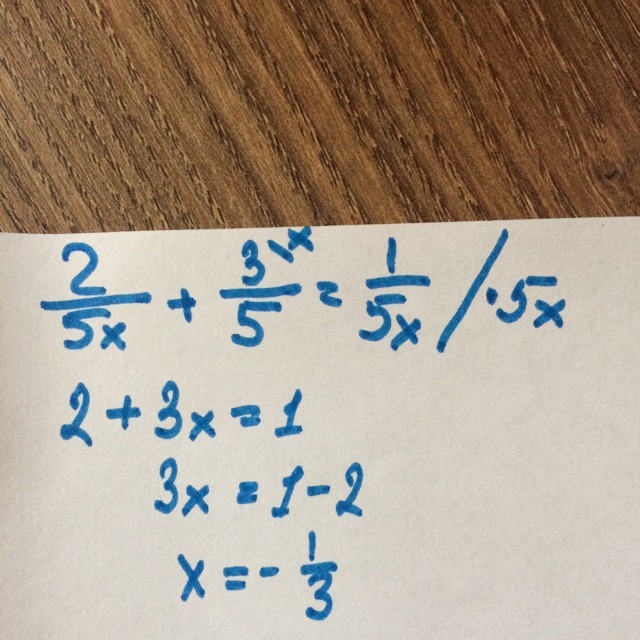 2/5x + 3/5 \x = 1/5x / ·5x
2 + 3x = 1
3x = 1 - 2
x = - 1/3